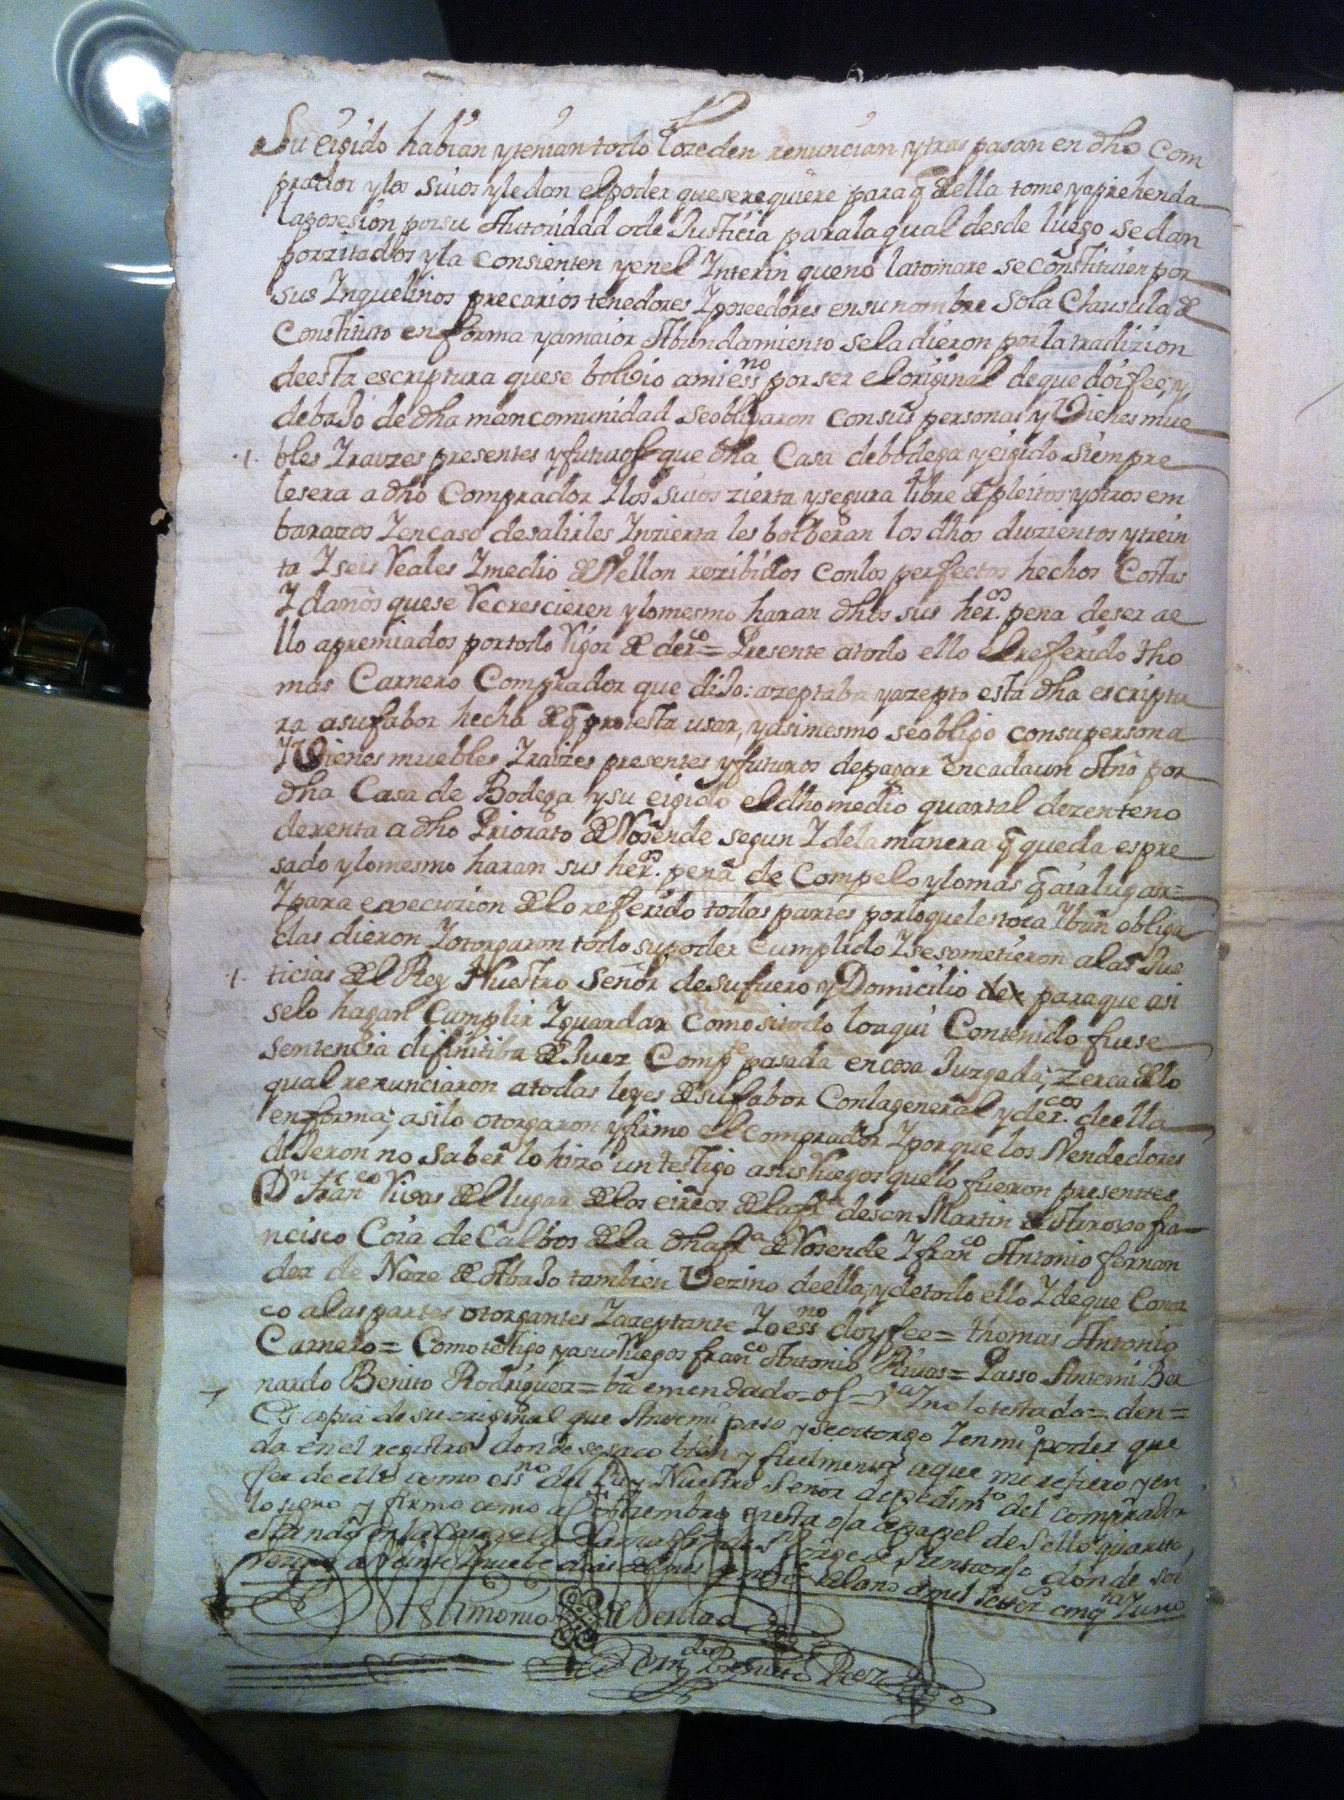 Su eigido habian y tenian todo lo zeden renuncian y tras pasan en dho Com
prador y los suios y le dan el poder que se requiere para q̃ de ella tome y aprehenda
la posesion por su Autoridad o de Justicia para la qual desde luego se dan
por zitados y la consienten y en el Interin que no la tomare se constituien por
sus Inquelinos precarios tenedores I poseedores en su nombre sola Clausula de
Constituto en forma y a maior Abundamiento se la dieron por la tradizion
de esta escriptura que se bolbio a mi essno por ser el original de que doi fee, y
debaJo de dha mancomunidad se obligaron con sus personas y Vienes mue
.1. bles I raizes presentes y futuros que dha Casa de bodega y eigido siempre
le sera a dho Comprador I los suios zierta y segura libre de pleitos y otros em
barazos I en caso de salirles Inzierta les bolberan los dhos duzientos y trein
ta I seis Reales I medio de Vellon rezibidos con los perfectos hechos Costas
I daños que se Recrescieren y lo mesmo haran dhos sus her.os pena de ser a e
llo apremiados por todo Rigor de der.co = Presente a todo ello el referido tho
mas Carnero Comprador que diJo: azeptaba y azepto esta dha escriptu
ra a su fabor hecha de q̃ protesta usar, y asimesmo se obligo con su persona
I Vienes muebles I raizes presentes y futuros de pagar en cada un Año por
dha Casa de Bodega y su eigido el dho medio quartal de zenteno
de renta a dho Priorato de Vosende segun I de la manera q̃ queda espre
sado y lo mesmo haran sus her.os pena de Compelo y lo mas q̃ aia lugar =
I para execuzion de lo referido todas partes por lo que les toca I ban obliga
das dieron I otorgaron todo su poder Cumplido I se sometieron a las Jus
.1. ticias de el Rey Nuestro Señor de su fuero y Domicilio dex para que asi
se lo hagan Cumplir I guardar Como si todo lo aqui Contenido fuese
sentencia difinitiba de Juez Compe pasada en cosa Juzgada; zerca de lo
qual renunciaron a todas leyes de su fabor Con la general y der.cos de ella
en forma; asi lo otorgaron y firmo el comprador I por que los Vendedores
diJeron no saber lo hizo un testigo a sus Ruegos que lo fueron presentes
Dn francco Rivas de el lugar de los eireos de la fa de san Martin fra
ncisco Coia de Calbos de la dha fa de Vosende I franco Antonio fernan
dez de Naze de AbaJo tambien Vezino de ella, y de todo ello I de que Conoz
co a las partes otorgantes I azeptante Io essno doy fee = thomas Antonio
Carnero = Como testigo y a sus Ruegos franco Antonio Rivas = Passo Antemi Ber
nardo Benito Rodriguez = ba emendado = no lo testado = den =
Es copia de su original que Antemi paso y se otorgo I en mi poder que
da en el registro donde se saco bien y fielmente a que me refiero y en
fee de ello como essno del Rey Nuestro Señor de pedimto del comprador
lo signo y firmo como en esta oja de papel de sello quarto,
estando en la donde soi
vezino a Veinte I nuebe dias del mes de del año de mil setez.os cinq.ta I uno
testimonio de Verdad
Bernardo Benito Rez